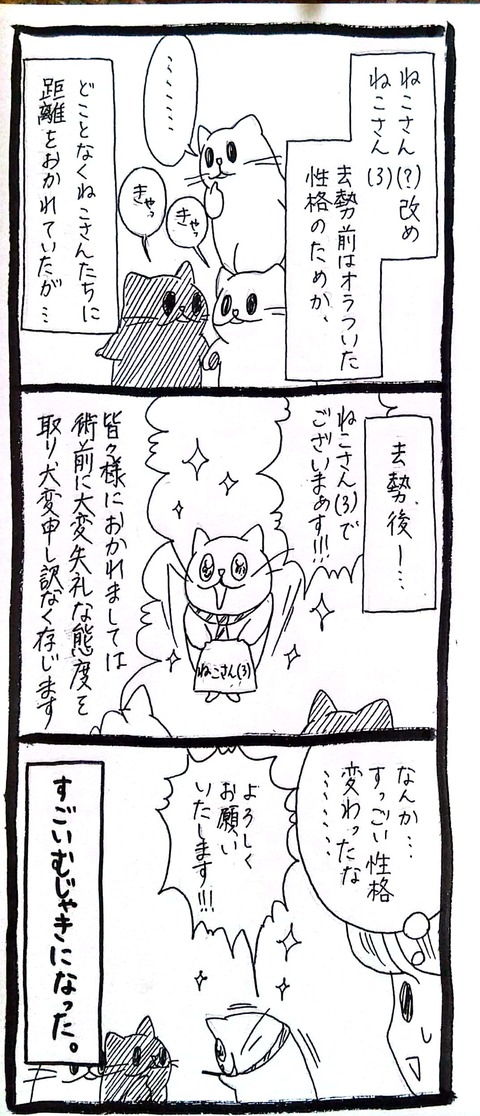 ねこさん(?)改め
ねこさん(3)
去勢前はオラついた
性格のためか、
……
きゃっ
きゃっ
どことなくねこさんたちに
距離をおかれていたが…
去勢後ー…
ねこさん(3)で
ございまぁす!!!
ねこさん(3)
皆々様におかれましては
術前に大変失礼な態度を
取り大変申し訳なく存じます
なんか…
すっごい性格
変わったな
……
よろしく
お願い
いたします!!!
すごいむじゃきになった。